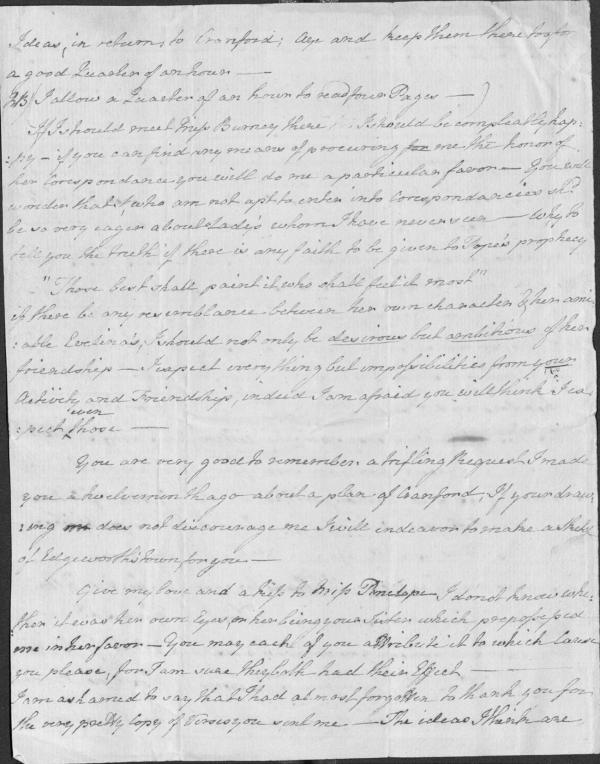 Ideas, in return, to Cranford; Aye and keep them there too for
a good Quarter of an hour —
NB (I allow a Quarter of an hour to read four Pages —)
If I should meet Miss Burney there I should be compleatly hap-
:py — if you can find any means of procuring for me the honor of
her Correspondance you will do me a particular favor — You will
wonder that I who am not apt to enter into Correspondancies shd.
be so very eager about Lady's whom I have never seen — Why to
tell you the truth if there is any faith to be given to Pope's prophecy
"Those best shall paint it who shall feel it most"
if there be any resemblance between her own character & her ami
:able Evelina's, I should not only be desirous but ambitious of her
friendship — I expect every thing but impossibilities from your
Activity and Friendship, indeed I am afraid you will think I ex
:pect even those —
You are very good to remember a trifling Request I made
you a twelvemonth ago about a plan of Cranford, If your draw
:ing does not discourage me I will indeavor to make a
of Edgeworthstown for you —
Give my love and a kiss to Miss Penelope I do not know whe
:ther it was her own Eyes or her being your Sister which prepossessed
me in her favor — You may each of you attribute it to which Cause
you please, for I am sure they both had their Effect —
I am ashamed to say that I had almost forgotten to thank you for
the very pretty Copy of Verses you sent me — The ideas I think are